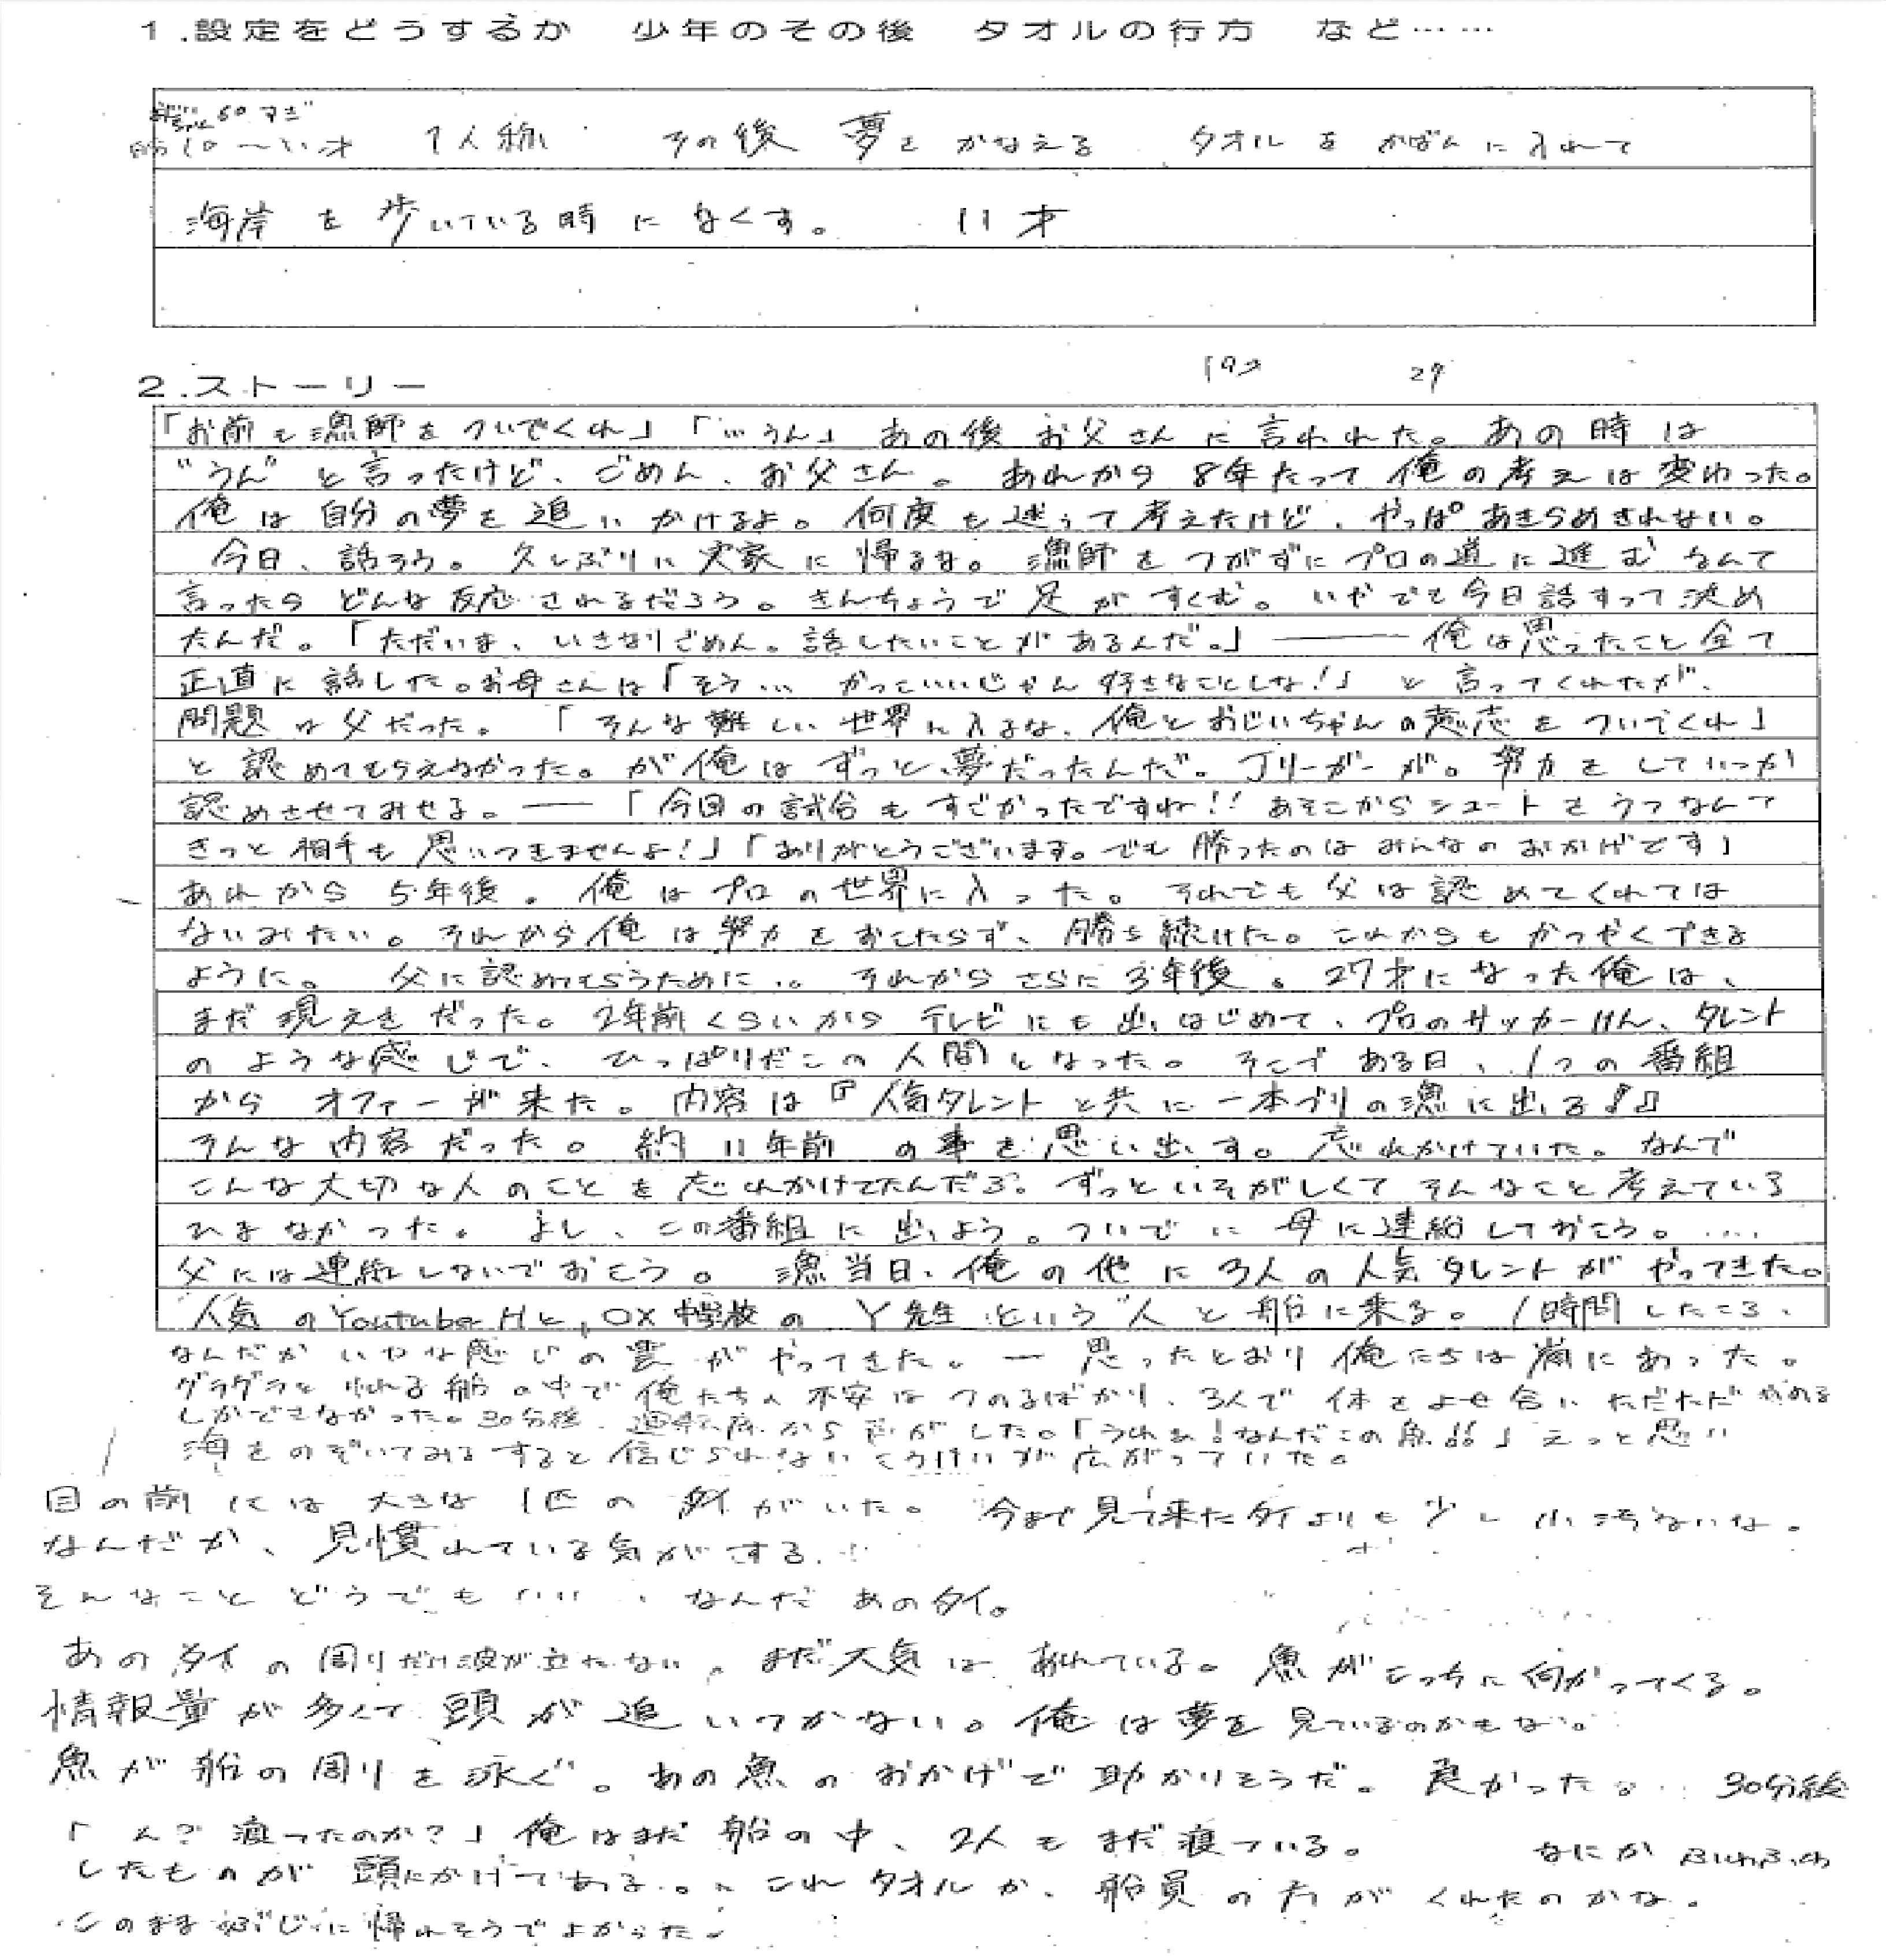 1.設定をどうするか　少年のその後　タオルの行方　など……
60才
10〜11才　1人称　その後　夢をかなえる　タオルをかばんに入れて
海岸を歩いている時になくす。　11才
2.ストーリー
「お前も漁師をついでくれ」「…うん」あの後お父さんに言われた。あの時は
"うん"と言ったけど、ごめん、お父さん。あれから8年たって俺の考えは変わった。
俺は自分の夢を追いかけるよ。何度も迷って考えたけど、やっぱあきらめきれない。
今日、話そう。久しぶりに実家に帰るな。漁師をつがずにプロの道に進むなんて
言ったらどんな反応されるだろう。きんちょうで足がすくむ。いやでも今日話すって決め
たんだ。「ただいま、いきなりごめん。話したいことがあるんだ。」―――俺は思ったこと全て
正直に話した。お母さんは「そう… かっこいいじゃん好きなことしな!」と言ってくれたが、
問題は父だった。「そんな難しい世界に入るな、俺とおじいちゃんの意志をついでくれ」
と認めてもらえなかった。が俺はずっと夢だったんだ。Jリーガーが。努力をしていつか
認めさせてみせる。――「今回の試合もすごかったですね!!あそこからシュートをうつなんて
きっと相手も思いつきませんよ!」「ありがとうございます。でも勝ったのはみんなのおかげです」
あれから5年後。俺はプロの世界に入った。それでも父は認めてくれては
ないみたい。それから俺は努力をおこたらず、勝ち続けた。これからもかつやくできる
ように。父に認めてもらうために…それからさらに3年後。27才になった俺は、
まだ現えきだった。2年前くらいからテレビにも出はじめて、プロのサッカーけん、タレント
のような感じで、ひっぱりだこの人間となった。そこである日、1つの番組
からオファーが来た。内容は『人気タレントと共に一本づりの漁に出る!!』
そんな内容だった。約11年前の事を思い出す。忘れかけていた。なんで
こんな大切な人のことを忘れかけてたんだろ。ずっといそがしくてそんなこと考えている
ひまなかった。よし、この番組に出よう。ついでに母に連絡しておこう。....
父には連絡しないでおこう。漁当日、俺の他に3人の人気タレントがやってきた。
人気のYoutuber Hと、OX学校のY先生という人と船に乗る。1時間したころ、
なんだかいやな感じの雲がやってきた。―思ったとおり俺たちは嵐にあった。
グラグラとゆれる船の中で俺たちの不安はつのるばかり、3人で体をよせ合いただただ
しかできなかった。30分後、運転席から声がした。「うわぁ!なんだこの魚!!」えっと思い
海をのぞいてみるすると信じられないこうけいが広がっていた。
目の前には大きな1匹のタイがいた。今まで見て来たタイよりも少し
なんだか、見慣れている気がする…
そんなことどうでもいい、なんだあのタイ。
あのタイの周りだけ波が立たない。まだ天気はあれている。魚がこっちに向かってくる。
情報量が多くて頭が追いつかない。俺は夢を見ているのかもな。
魚が船の周りを泳ぐ。あの魚のおかげで助かりそうだ。良かった… 30分後
「ん?渡ったのか?」俺はまだ船の中、2人もまだ寝ている。なにかふわふわ
したものが頭にかけてある。これタオルか、船員の方がくれたのかな。
このままぶじに帰れそうでよかった。